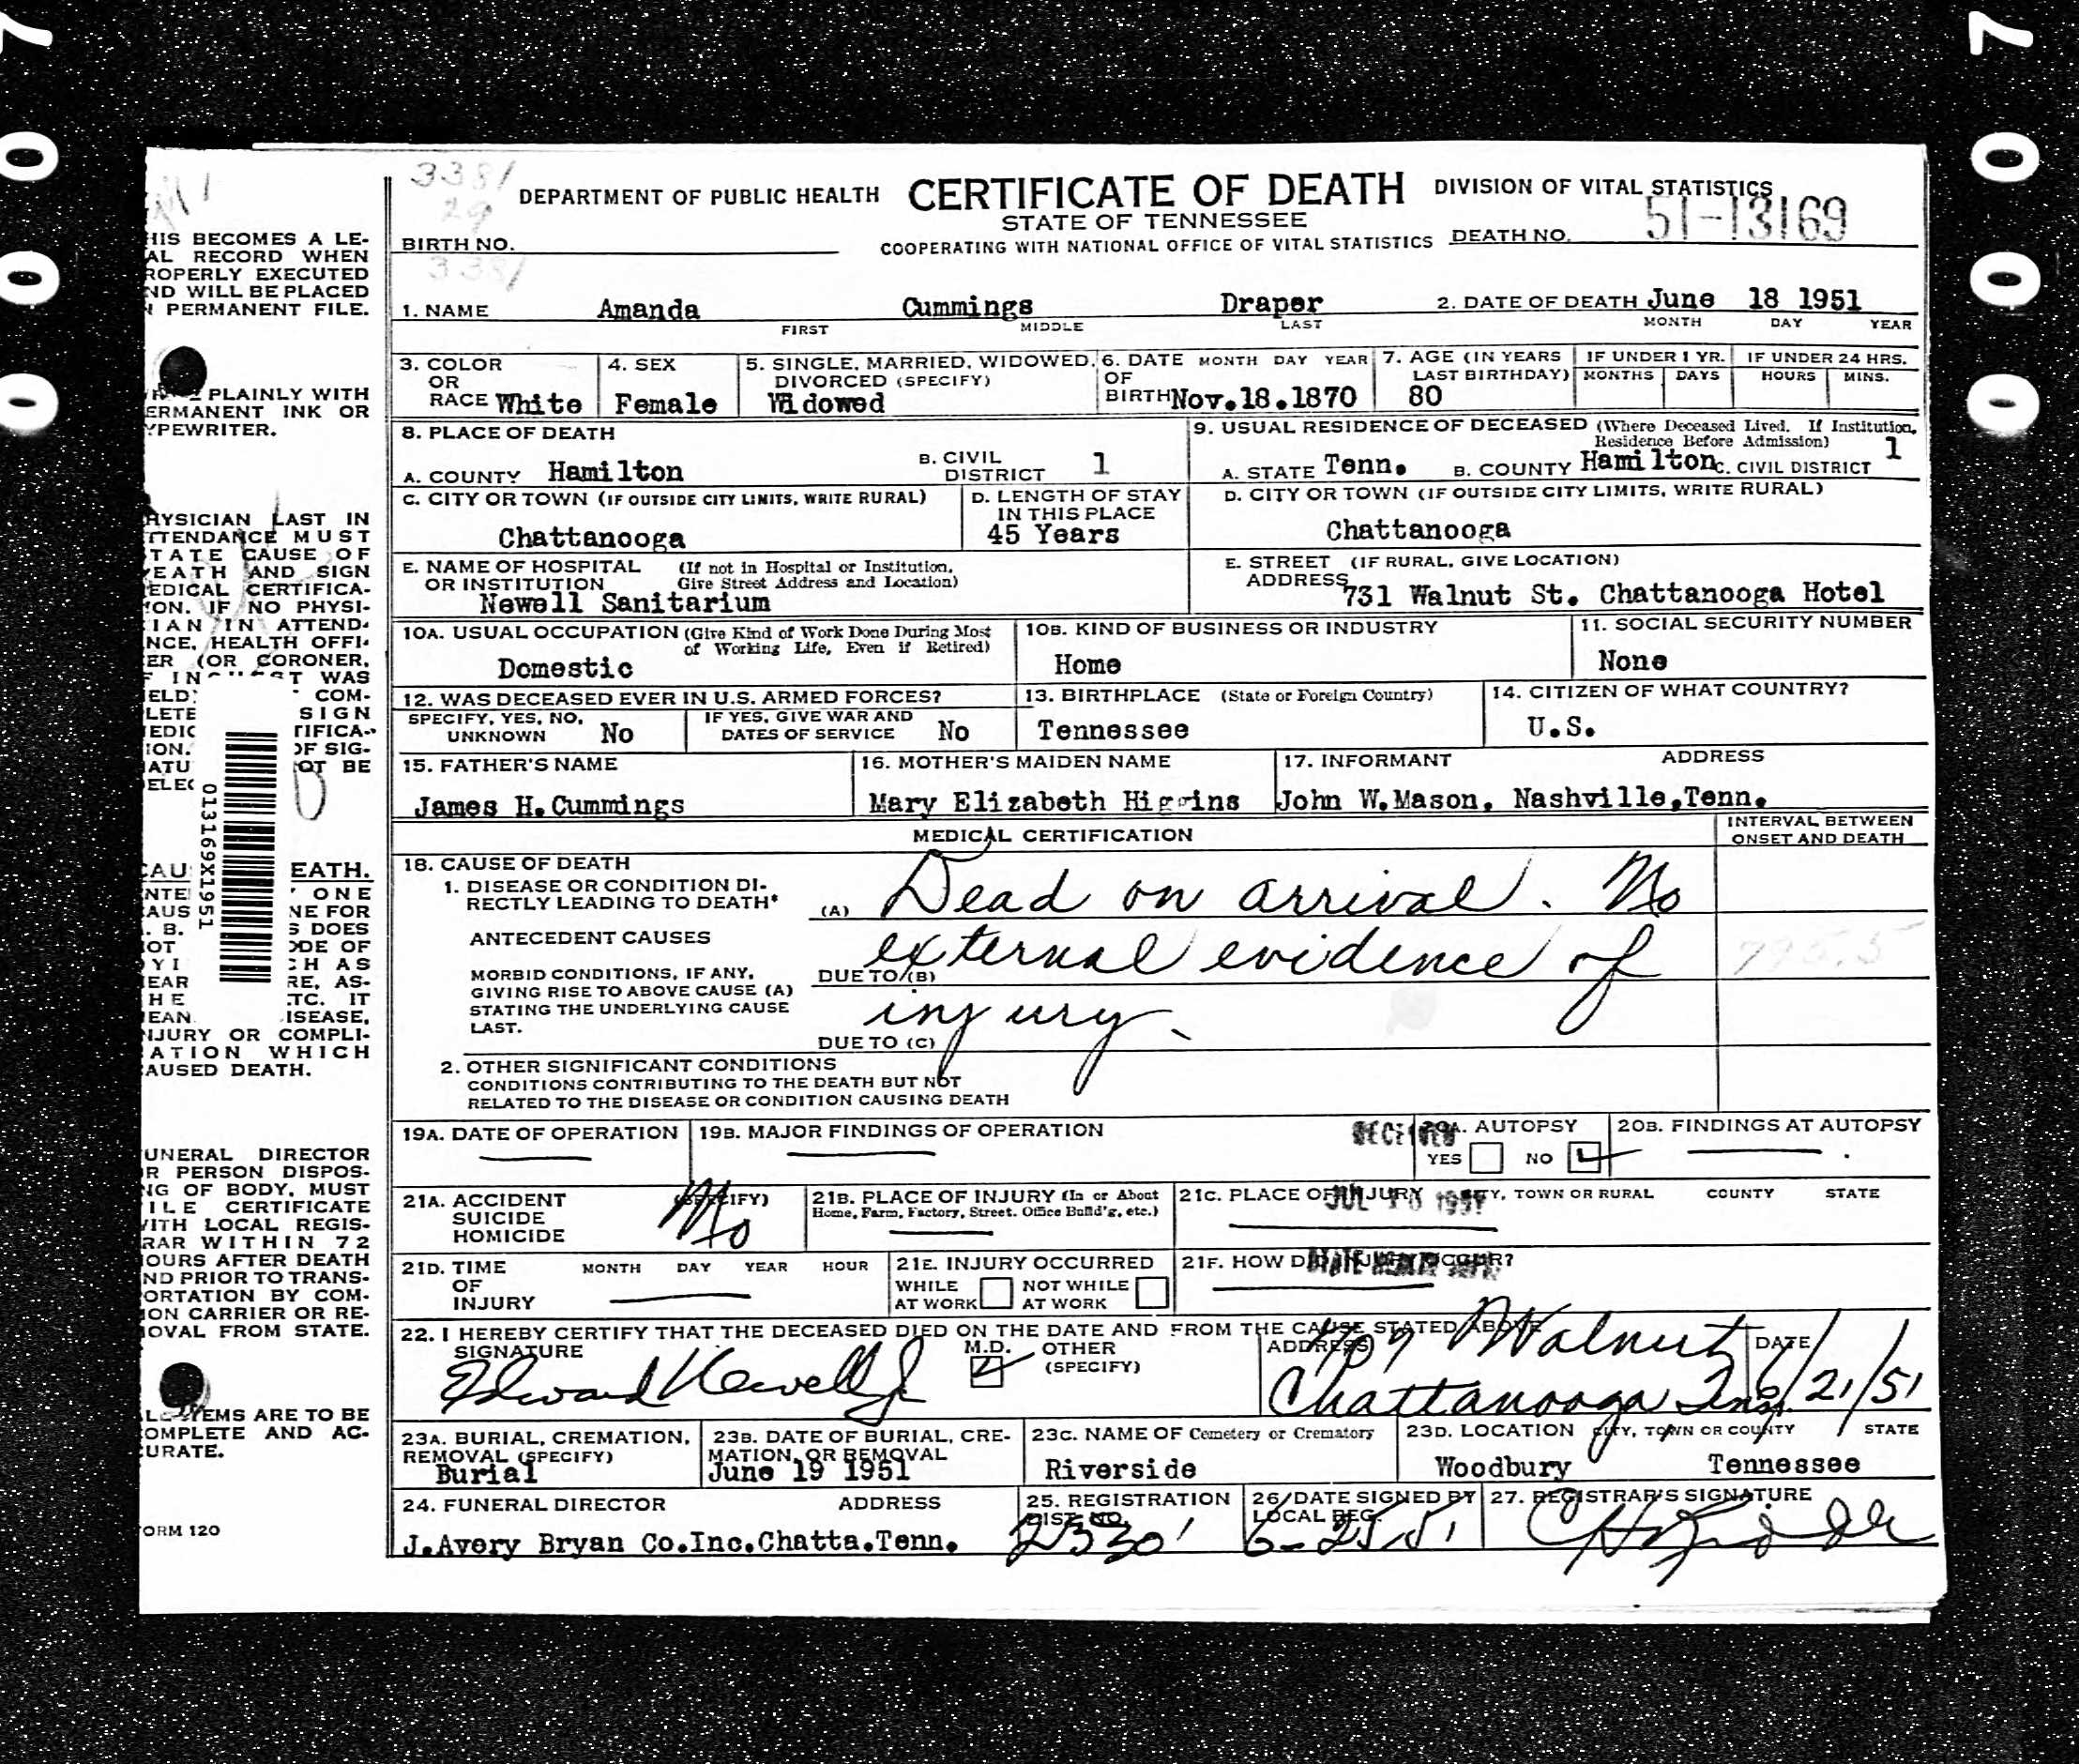 0007
0007
3381
29
DEPARTMENT OF PUBLIC HEALTH CERTIFICATE OF DEATH DIVISION OF VITAL STATISTICS
STATE OF TENNESSEE
51-13169
BIRTH NO. COOPERATING WITH NATIONAL OFFICE OF VITAL STATISTICS DEATH NO.
3381
1. NAME Amanda Cummings Draper 2. DATE OF DEATH June 18 1951
FIRST MIDDLE LAST MONTH DAY YEAR
3. COLOR OR RACE White
4. SEX Female
5. SINGLE, MARRIED, WIDOWED, DIVORCED (SPECIFY) Widowed
6. DATE OF BIRTH MONTH DAY YEAR Nov.18.1870
7. AGE (IN YEARS LAST BIRTHDAY) 80
IF UNDER 1 YR. MONTHS DAYS
IF UNDER 24 HRS. HOURS MINS.
8. PLACE OF DEATH
A. COUNTY Hamilton B. CIVIL DISTRICT 1
C. CITY OR TOWN (IF OUTSIDE CITY LIMITS, WRITE RURAL) Chattanooga
D. LENGTH OF STAY IN THIS PLACE 45 Years
E. NAME OF HOSPITAL OR INSTITUTION (If not in Hospital or Institution, Give Street Address and Location)
Newell Sanitarium
9. USUAL RESIDENCE OF DECEASED (Where Deceased Lived. If Institution, Residence Before Admission)
A. STATE Tenn. B. COUNTY Hamilton C. CIVIL DISTRICT 1
D. CITY OR TOWN (IF OUTSIDE CITY LIMITS, WRITE RURAL)
Chattanooga
E. STREET ADDRESS (IF RURAL, GIVE LOCATION)
731 Walnut St. Chattanooga Hotel
10A. USUAL OCCUPATION (Give Kind of Work Done During Most of Working Life, Even if Retired)
Domestic
10B. KIND OF BUSINESS OR INDUSTRY
Home
11. SOCIAL SECURITY NUMBER
None
12. WAS DECEASED EVER IN U.S. ARMED FORCES?
SPECIFY, YES, NO, UNKNOWN No
IF YES, GIVE WAR AND DATES OF SERVICE No
13. BIRTHPLACE (State or Foreign Country)
Tennessee
14. CITIZEN OF WHAT COUNTRY?
U.S.
15. FATHER'S NAME
James H. Cummings
16. MOTHER'S MAIDEN NAME
Mary Elizabeth Higgins
17. INFORMANT ADDRESS
John W.Mason, Nashville,Tenn.
MEDICAL CERTIFICATION
INTERVAL BETWEEN ONSET AND DEATH
18. CAUSE OF DEATH
1. DISEASE OR CONDITION DIRECTLY LEADING TO DEATH* (A) Dead on arrival. No
ANTECEDENT CAUSES
MORBID CONDITIONS, IF ANY, GIVING RISE TO ABOVE CAUSE (A) STATING THE UNDERLYING CAUSE LAST.
DUE TO (B) external evidence of
795.5
DUE TO (C) injury.
2. OTHER SIGNIFICANT CONDITIONS
CONDITIONS CONTRIBUTING TO THE DEATH BUT NOT
RELATED TO THE DISEASE OR CONDITION CAUSING DEATH
19A. DATE OF OPERATION
19B. MAJOR FINDINGS OF OPERATION
RECEIVED
20A. AUTOPSY
YES NO
20B. FINDINGS AT AUTOPSY
21A. ACCIDENT SUICIDE HOMICIDE (SPECIFY) No
21B. PLACE OF INJURY (In or About Home, Farm, Factory, Street, Office Build'g, etc.)
21C. PLACE OF INJURY CITY, TOWN OR RURAL COUNTY STATE
JUL 10 1951
21D. TIME OF INJURY MONTH DAY YEAR HOUR
21E. INJURY OCCURRED
WHILE AT WORK NOT WHILE AT WORK
21F. HOW DID INJURY OCCUR?
22. I HEREBY CERTIFY THAT THE DECEASED DIED ON THE DATE AND FROM THE CAUSE STATED ABOVE
SIGNATURE Edward Newell Jr M.D. OTHER (SPECIFY)
ADDRESS 709 Walnut
Chattanooga Tenn.
DATE 6/21/51
23A. BURIAL, CREMATION, REMOVAL (SPECIFY)
Burial
23B. DATE OF BURIAL, CREMATION, OR REMOVAL
June 19 1951
23C. NAME OF Cemetery or Crematory
Riverside
23D. LOCATION CITY, TOWN OR COUNTY STATE
Woodbury Tennessee
24. FUNERAL DIRECTOR ADDRESS
J.Avery Bryan Co.Inc.Chatta.Tenn.
25. REGISTRATION DIST. NO.
2330
26. DATE SIGNED BY LOCAL REG.
6-25-51
27. REGISTRAR'S SIGNATURE
HIS BECOMES A LE-
AL RECORD WHEN
ROPERLY EXECUTED
ND WILL BE PLACED
N PERMANENT FILE.
PLAINLY WITH
ERMANENT INK OR
YPEWRITER.
HYSICIAN LAST IN
TTENDANCE MUST
TATE CAUSE OF
EATH AND SIGN
EDICAL CERTIFICA-
ION. IF NO PHYSI-
IAN IN ATTEND-
NCE, HEALTH OFFI-
ER (OR CORONER,
WAS
ELD COM-
LETE SIGN
EDIC TIFICA-
ION. OF SIG-
ATU OT BE
ELEC
013169X1951
CAU EATH.
NTE ONE
AUS NE FOR
. B. S DOES
OT ODE OF
YI CH AS
EAR RE, AS-
HE TC. IT
EAN ISEASE,
NJURY OR COMPLI-
ATION WHICH
AUSED DEATH.
UNERAL DIRECTOR
R PERSON DISPOS-
NG OF BODY, MUST
ILE CERTIFICATE
WITH LOCAL REGIS-
RAR WITHIN 72
OURS AFTER DEATH
ND PRIOR TO TRANS-
ORTATION BY COM-
ION CARRIER OR RE-
OVAL FROM STATE.
L ITEMS ARE TO BE
OMPLETE AND AC-
URATE.
ORM 120